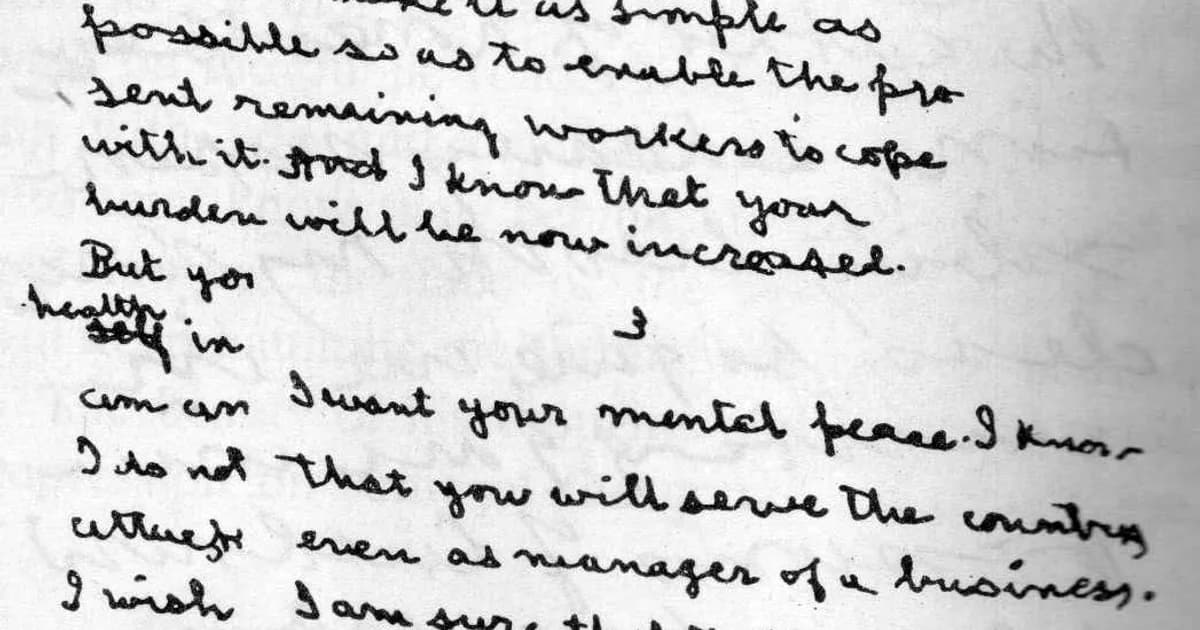 it as simple as
possible so as to enable the pre
sent remaining workers to cope
with it. And I know that your
burden will be now increased.
But you
health
self in
3
I want your mental peace. I know
I do not
that you will serve the country
even as manager of a business.
I wish
I am sure